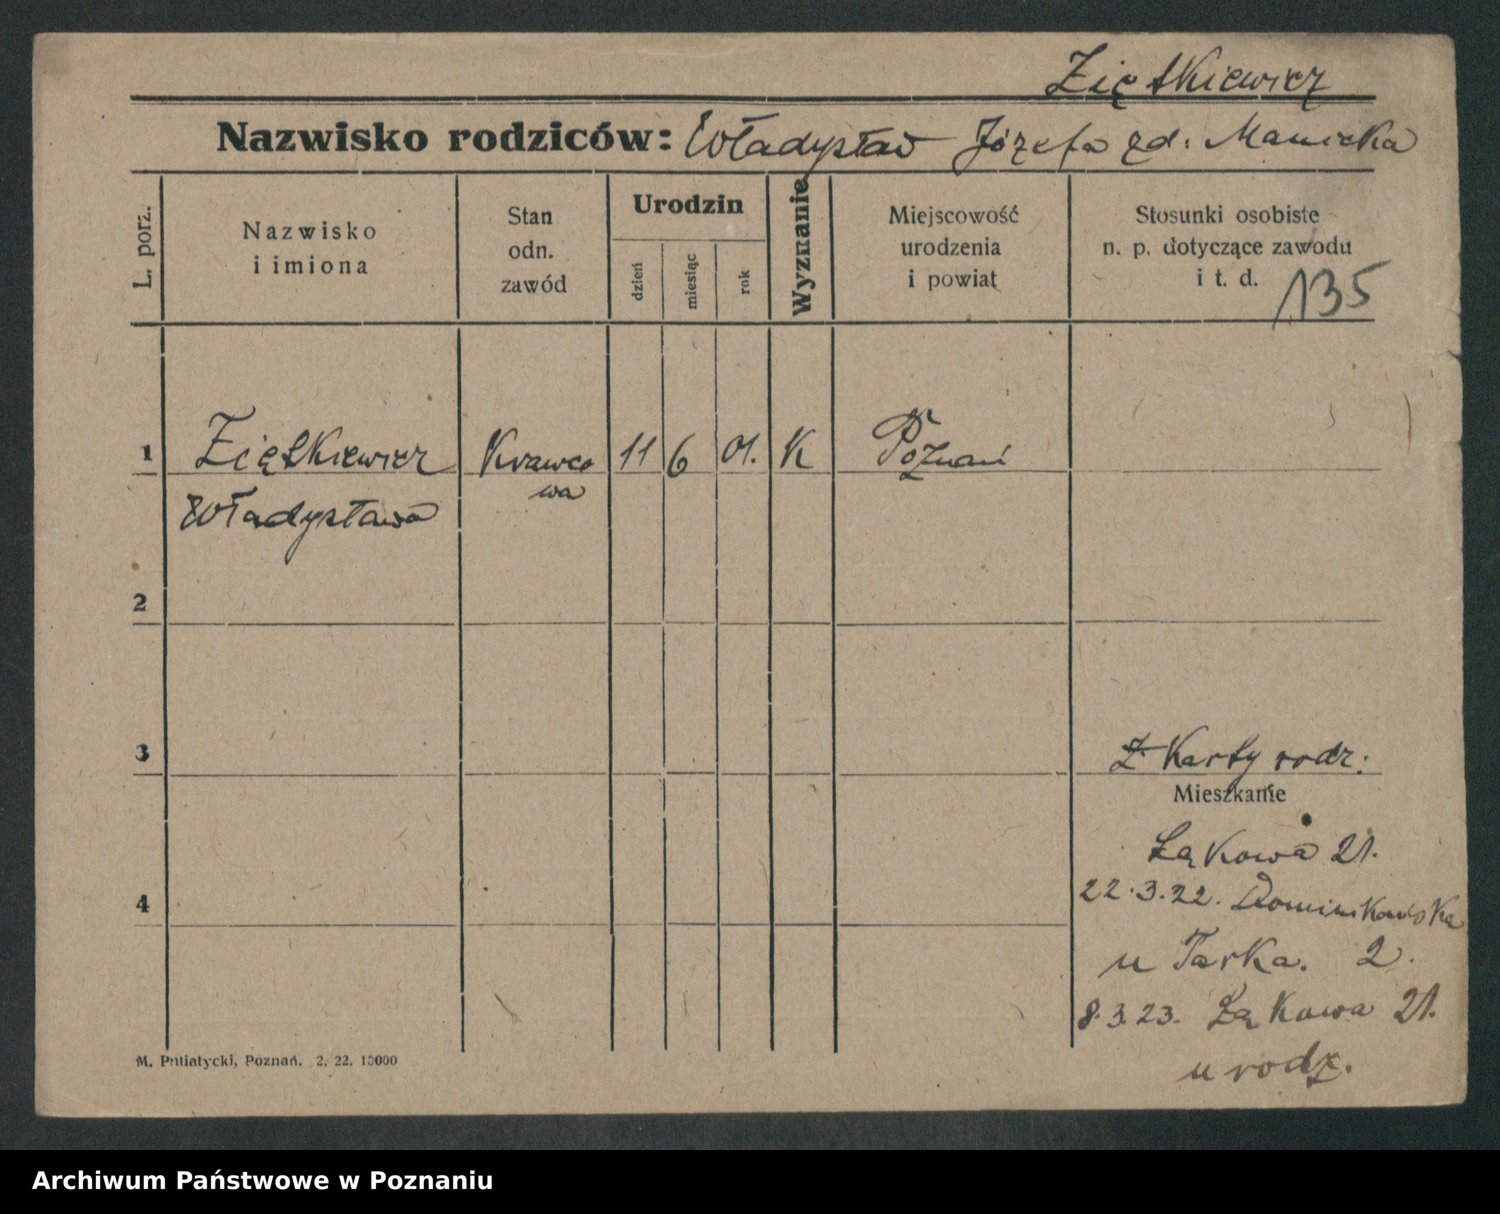 Ziętkiewicz
Nazwisko rodziców: Władysław Józefa zd. Manicka
L. porz.
Nazwisko
i imiona
Stan
odn.
zawód
Urodzin
dzień
miesiąc
rok
Wyznanie
Miejscowość
urodzenia
i powiat
Stosunki osobiste
n. p. dotyczące zawodu
i t. d.
135
1 Ziętkiewicz Krawco 11 6 01. K Poznań
wa
Władysława
2
3
Z Karty rodz:
Mieszkanie
Łąkowa 21.
4
22.3.22. Dominikowska
u Tarka. 2.
8.3.23. Łąkowa 21.
u rodz.
M. Putiatycki, Poznań. 2. 22. 10000
Archiwum Państwowe w Poznaniu